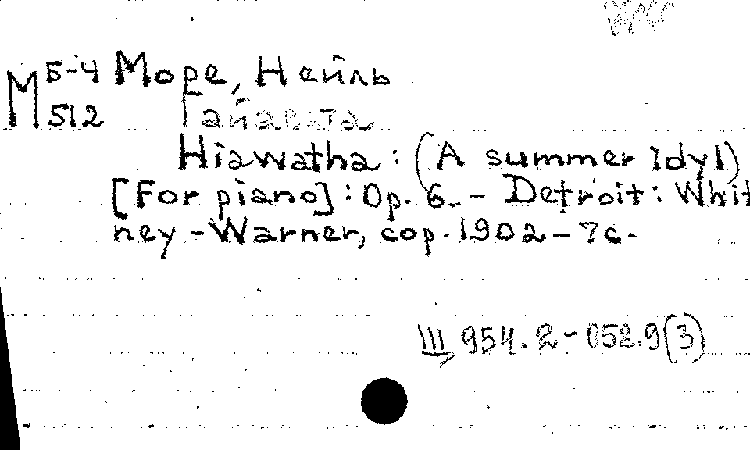 М Б-4 Море, Нейль
512 Гайавата
Hiawatha: (A summer Idyl)
[For piano]: Op. 6. - Detroit: Whit
ney - Warner, cop. 1902 - 7c.
III 954.2-052.9(3)